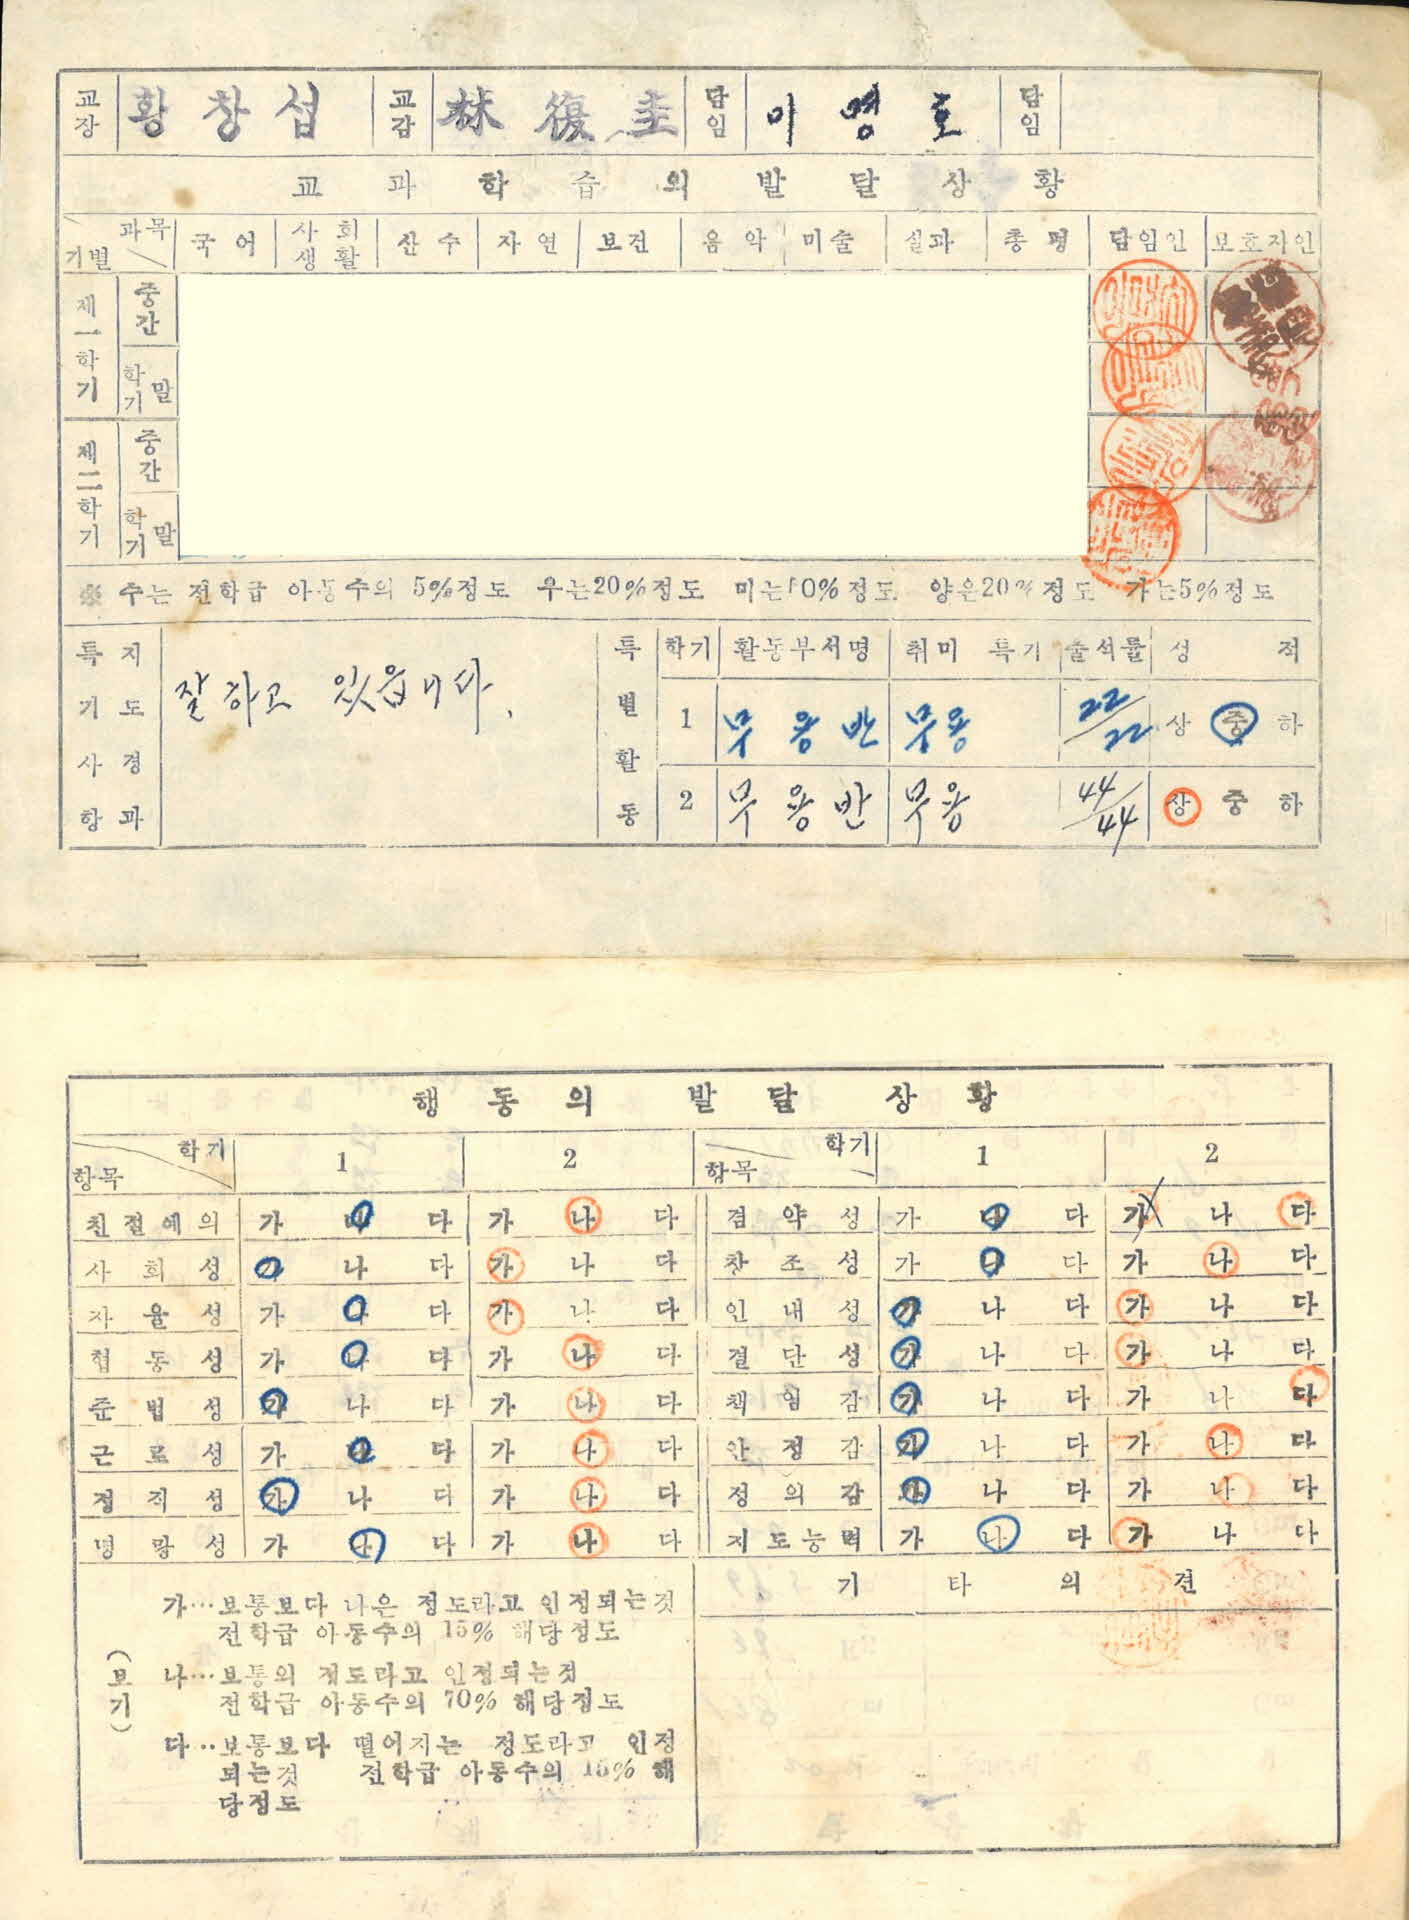 교장 황창섭 교감 林復圭 담임 이명호 담임
교과학습의발달상황
과목 기별 국어 사회생활 산수 자연 보건 음악 미술 실과 총평 담임인 보호자인
제一학기 중간
학기말
제二학기 중간
학기말
※ 수는 전학급 아동수의 5%정도 우는20%정도 미는50%정도 양은20%정도 가는5%정도
특기사항 지도경과 잘하고 있읍니다.
특별활동 학기 활동부서명 취미 특기 출석률 성적
1 무용반 무용 22/22 상 중 하
2 무용반 무용 44/44 상 중 하
행동의 발달 상황
학기 항목 1 2 학기 항목 1 2
친절예의 가 나 다 가 나 다 검약성 가 나 다 가 나 다
사회성 가 나 다 가 나 다 창조성 가 나 다 가 나 다
자율성 가 나 다 가 나 다 인내성 가 나 다 가 나 다
협동성 가 나 다 가 나 다 결단성 가 나 다 가 나 다
준법성 가 나 다 가 나 다 책임감 가 나 다 가 나 다
근로성 가 나 다 가 나 다 안정감 가 나 다 가 나 다
정직성 가 나 다 가 나 다 정의감 가 나 다 가 나 다
명랑성 가 나 다 가 나 다 지도능력 가 나 다 가 나 다
기타의견
(보기)
가…보통보다 나은 정도라고 인정되는것
전학급 아동수의 15% 해당정도
나…보통의 정도라고 인정되는것
전학급 아동수의 70% 해당정도
다…보통보다 떨어지는 정도라고 인정
되는것 전학급 아동수의 15% 해
당정도